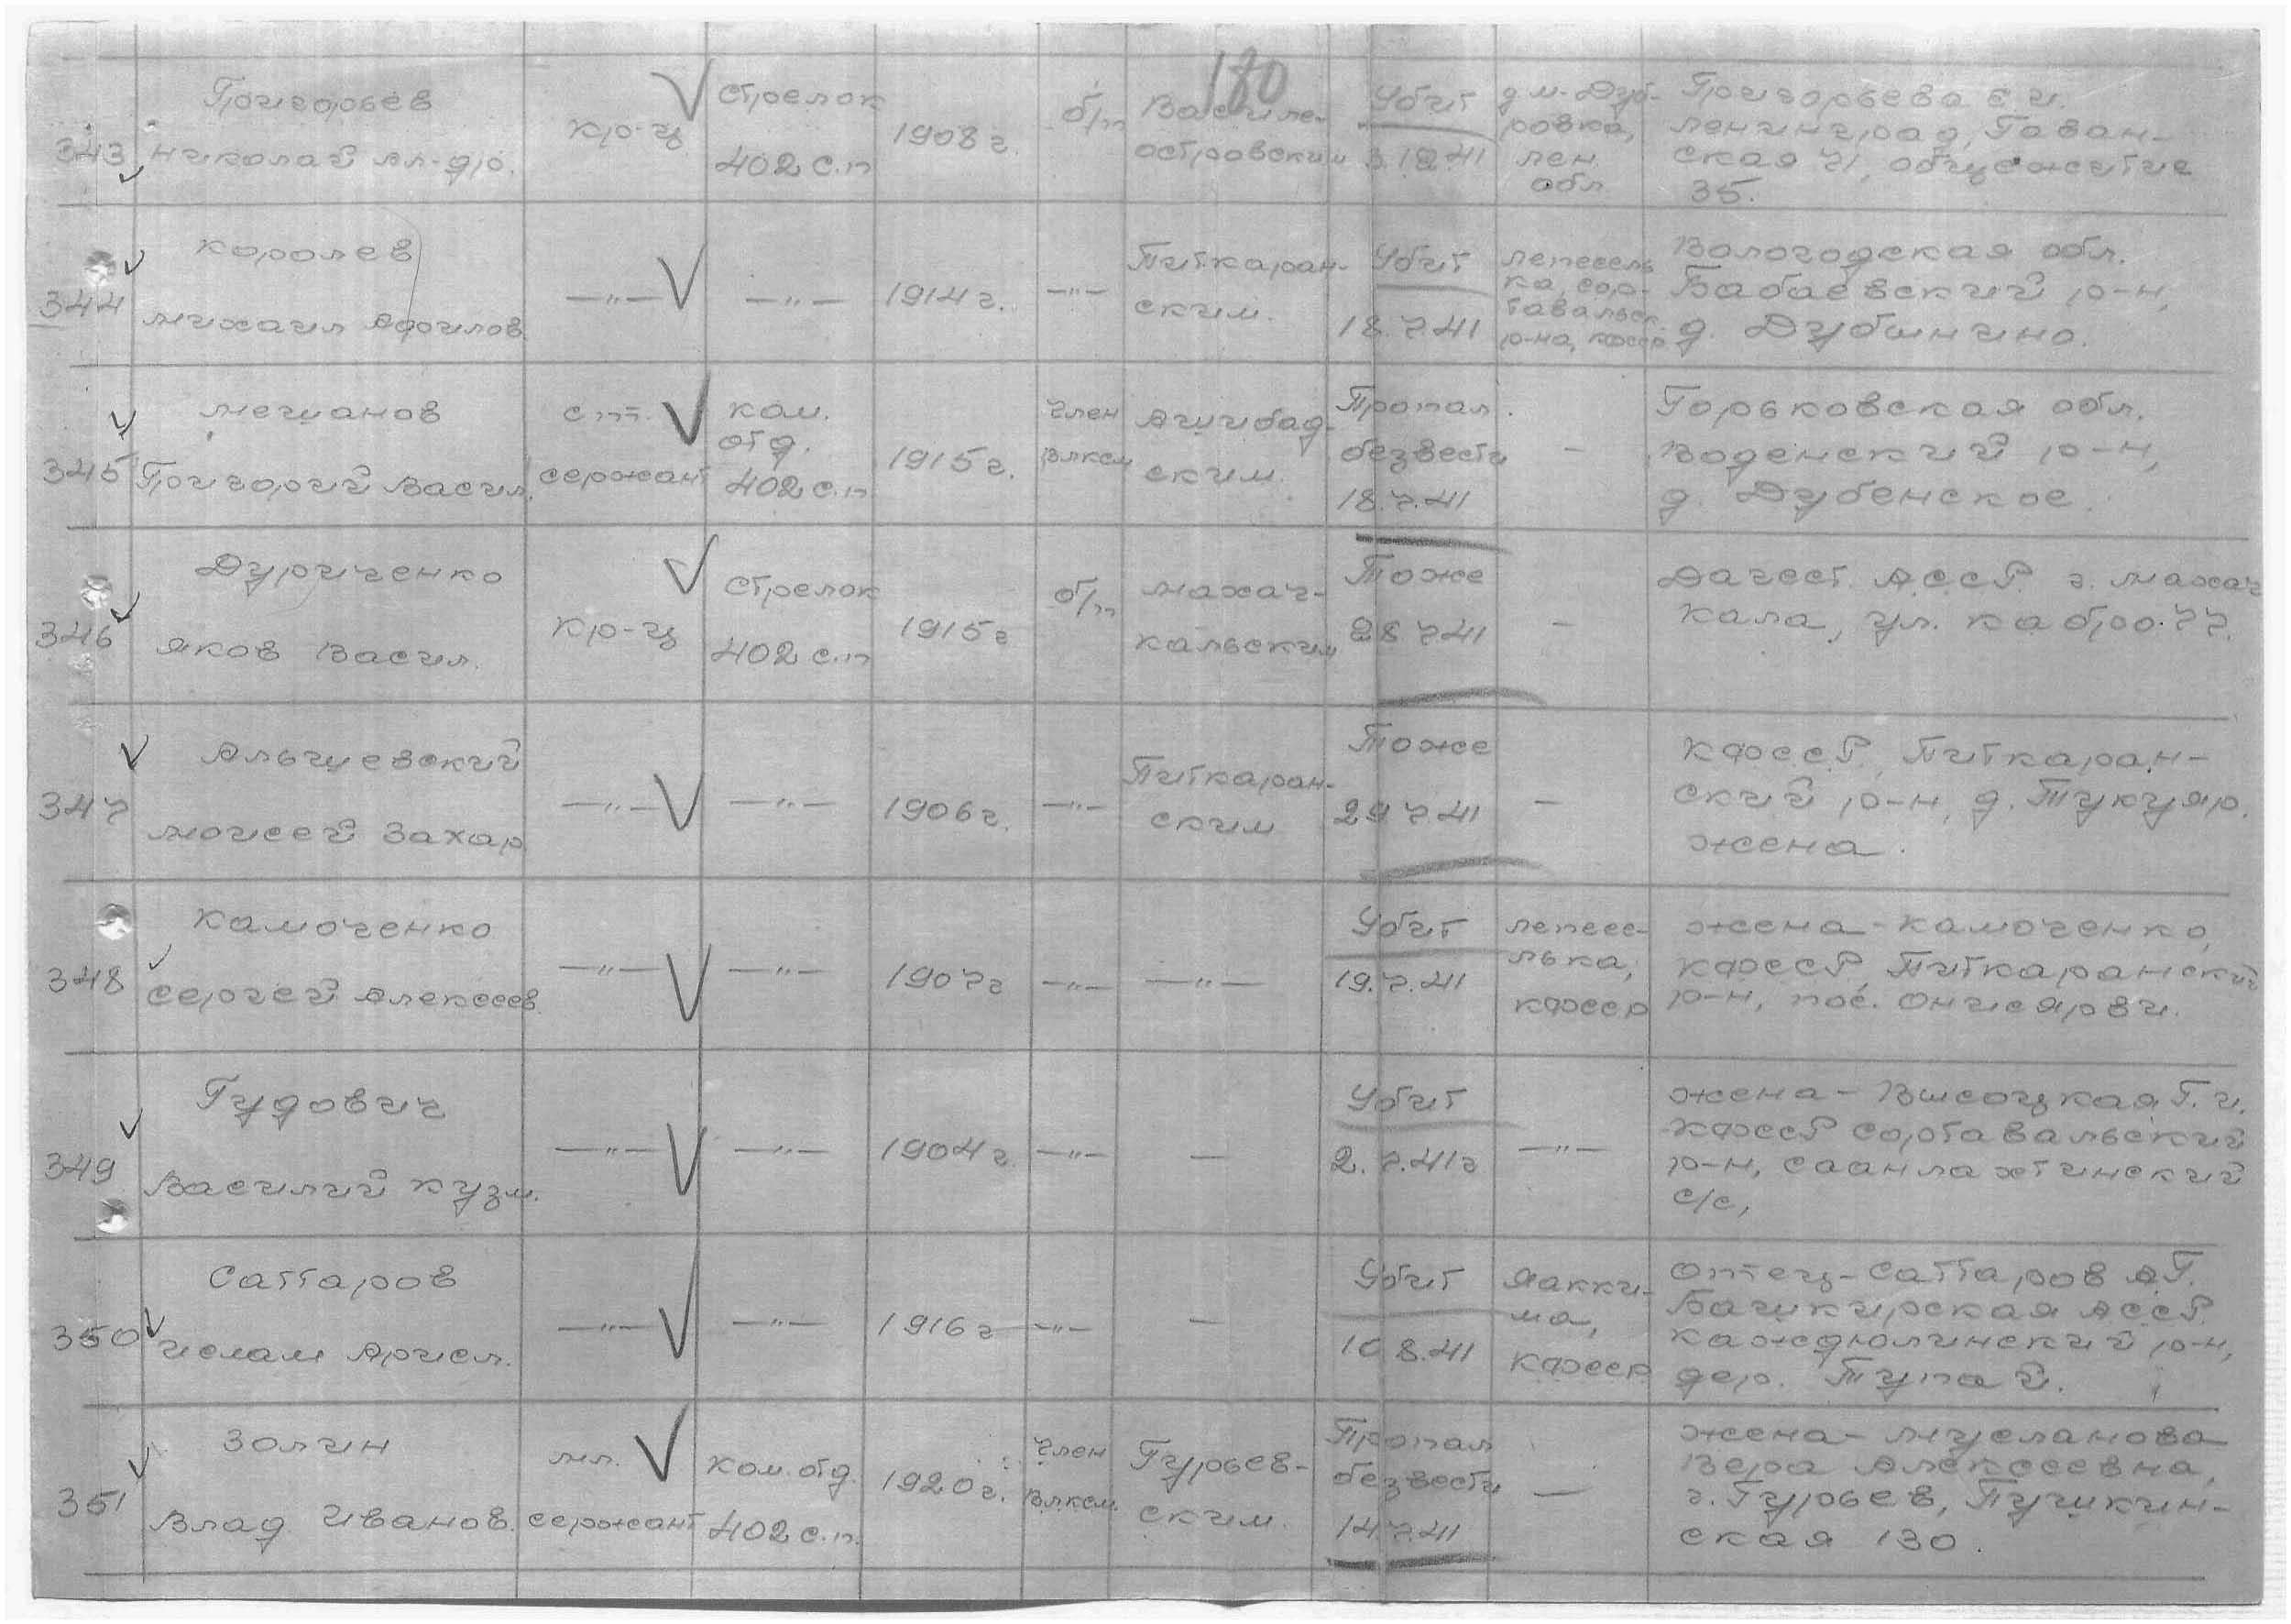 180
343
Григорьев
Николай Ал-др.
кр-ц
Стрелок
402 с.п
1908 г.
б/п
Василе-
островским
Убит
3.12.41
д. М-Дуб-
ровка,
Лен.
обл
Григорьева Е.И.
Ленинград, Гаван-
ская 41, общежитие
35.
344
Королев
Михаил
—"—
—"—
1914 г.
—"—
Питкаран-
ским.
Убит
18.7.41
Лепесель
ка, Сор-
тавальск.
р-на, КФССР
Вологодская обл.
Бабаевский р-н,
д. Дубшнино.
345
Мешанов
Григорий Васил.
ст.
сержант
ком.
отд.
402 с.п
1915 г.
член
ВЛКСМ
Ашхбад-
ским.
Пропал
безвести
18.7.41
–
Горьковская обл.
Воденский р-н,
д. Дубенское.
346
Дурниченко
Яков Васил.
кр-ц
Стрелок
402 с.п
1915 г
б/п
Махач-
кальским
Тоже
28.7.41
–
Дагест. АССР. г. Махач
кала, ул.
347
Альшевский
Моисей Захар
—"—
—"—
1906 г.
—"—
Питкаран-
ским
Тоже
29.7.41
–
КФССР, Питкаран-
ский р-н, д. Тукуяр.
жена.
348
Камоченко
Сергей Алексеев
—"—
—"—
1907 г
—"—
—"—
Убит
19.7.41
Лепесе-
лька,
КФССР
жена - Камоченко,
КФССР, Питкаранский
р-н, пос. Онисярви.
349
Гудович
Василий Кузм.
—"—
—"—
1904 г
—"—
—
Убит
2.7.41 г
—"—
жена - Высоцкая Г.И.
КФССР Сортавальский
р-н, Саанлахтинский
с/с,
350
Саттаров
Ислам Арисл.
—"—
—"—
1916 г
—"—
—
Убит
10.8.41
Яакки-
ма,
КФССР
отец - Саттаров А.Г.
Башкирская АССР.
р-н,
дер. Тупай.
351
Золин
Влад. Иванов.
мл.
сержант
ком. отд.
402 с.п.
1920 г.
член
ВЛКСМ
Гурьев-
ским.
Пропал
безвести
14.7.41
—
жена - Мусланова
Вера Алексеевна,
г. Гурьев, Пушкин-
ская 130.